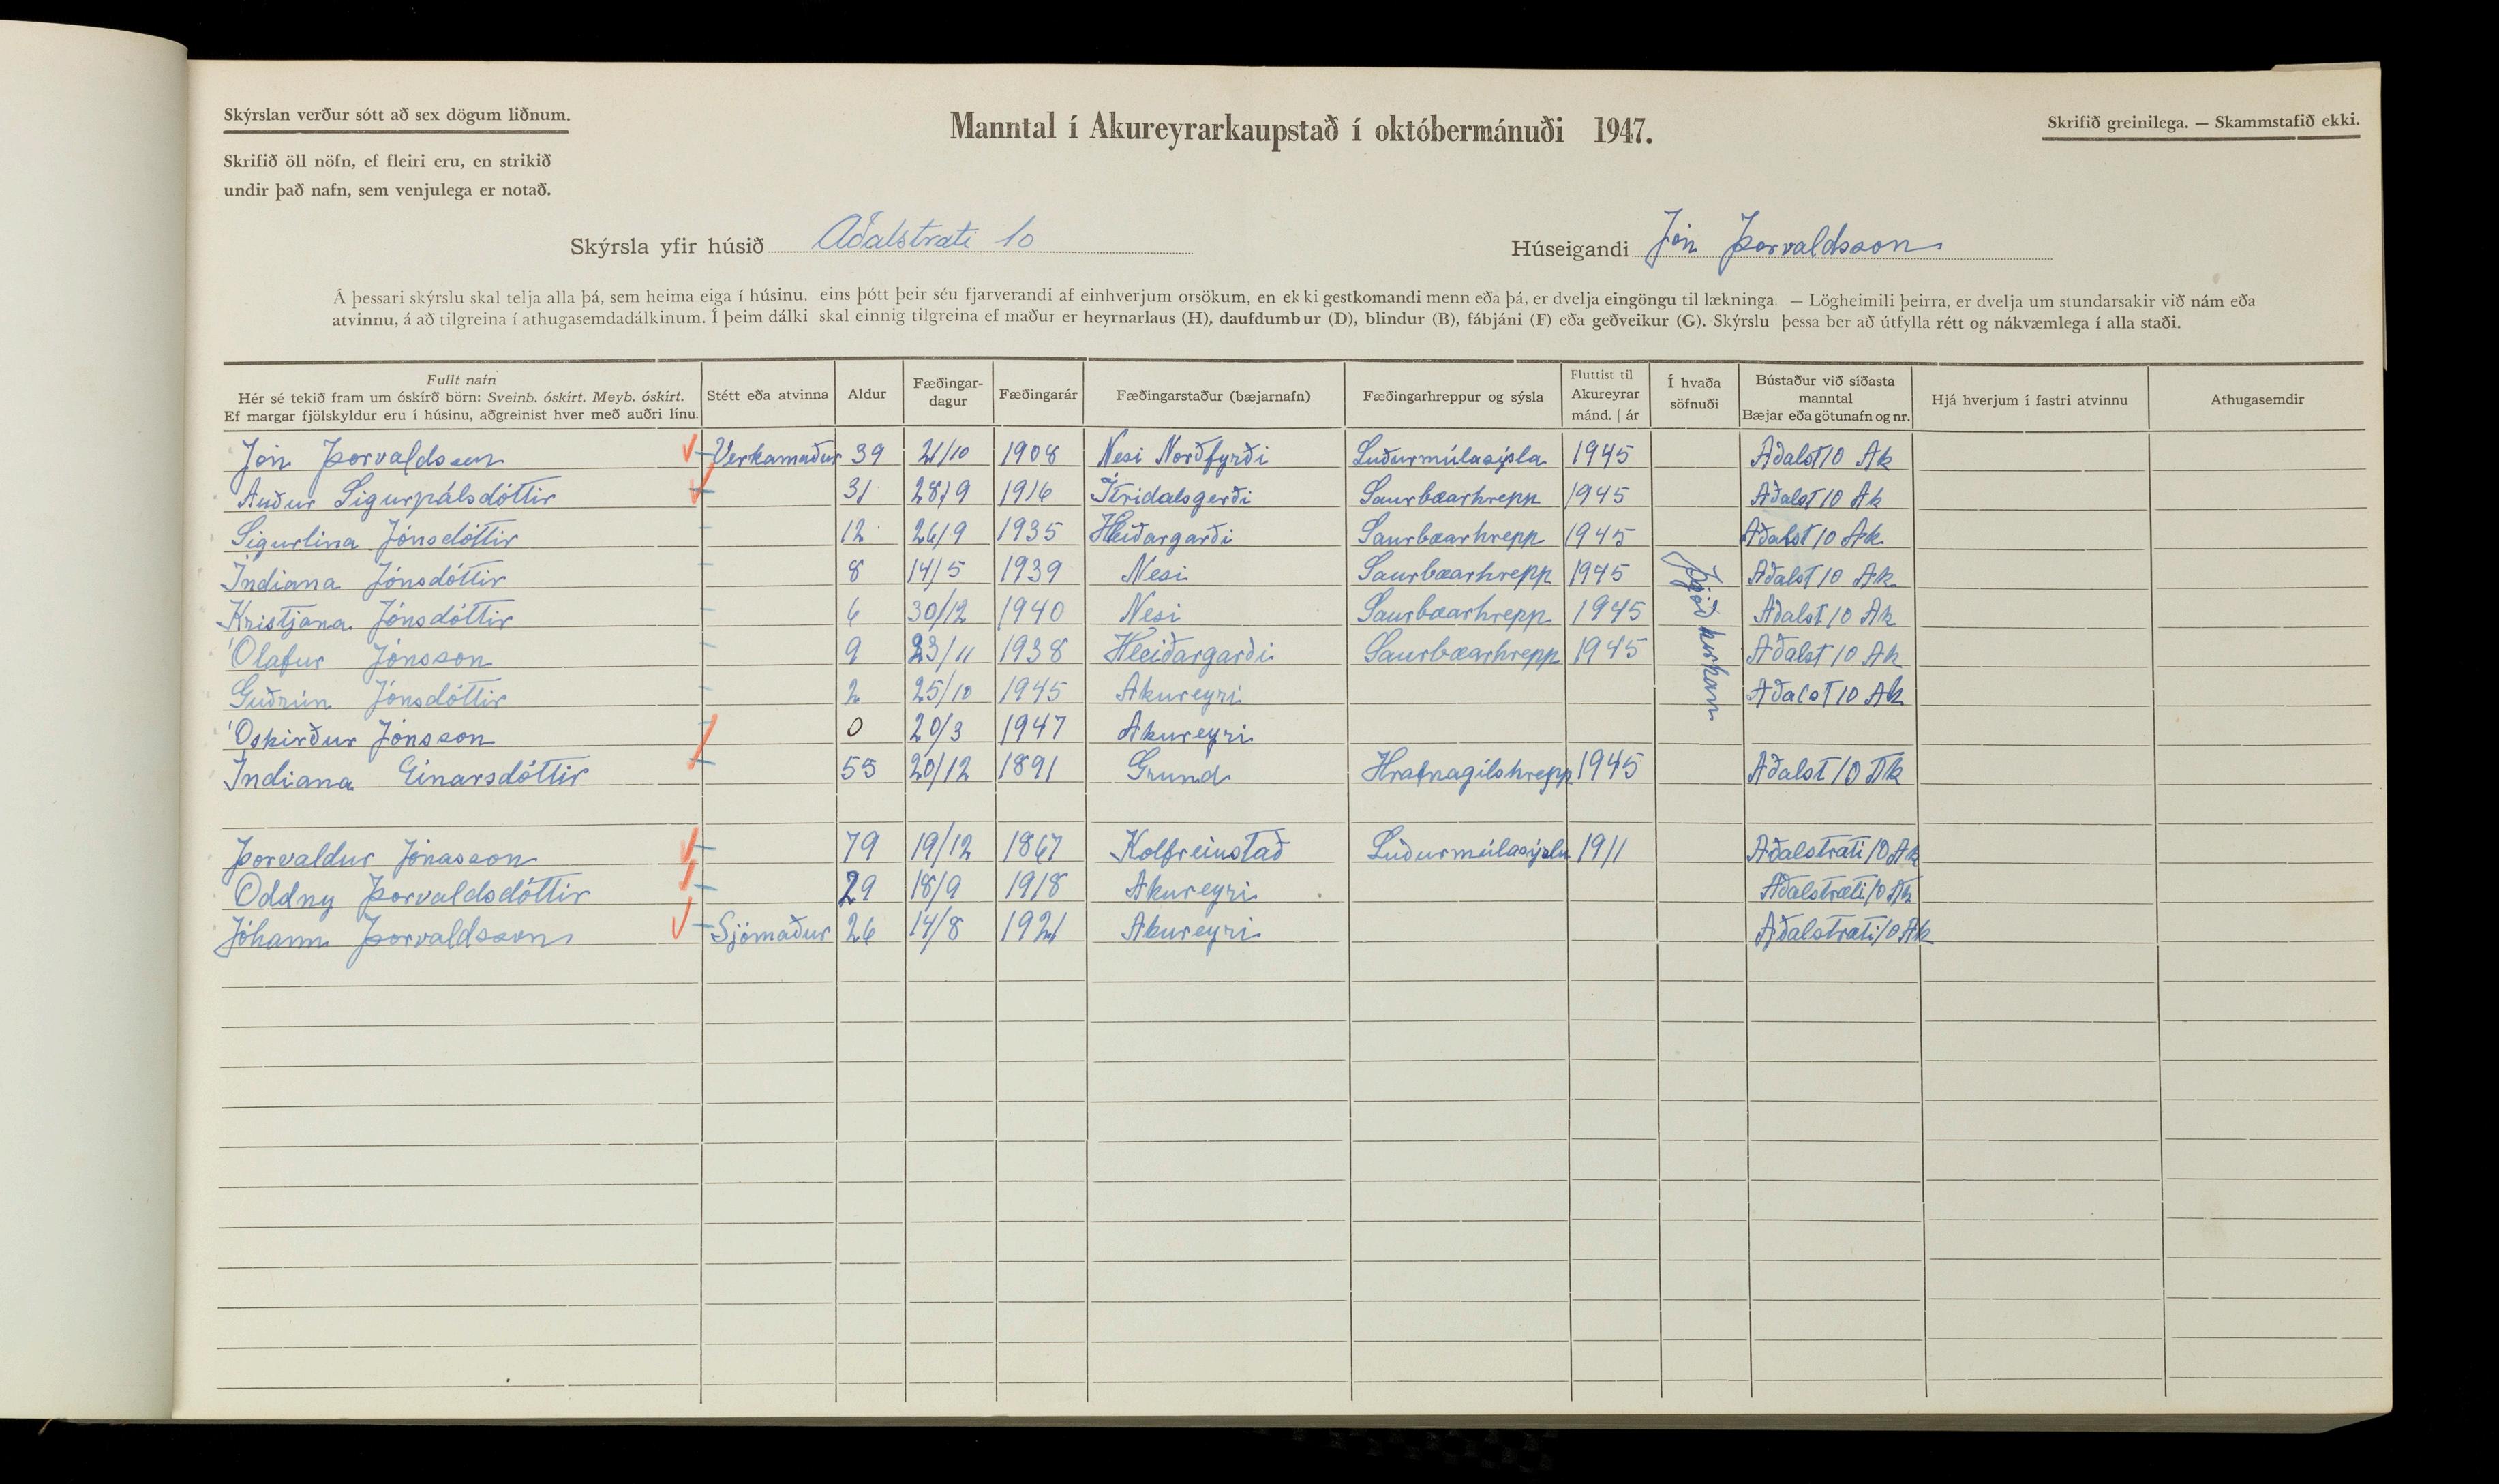 Skýrslan verður sótt að sex dögum liðnum.
Manntal í Akureyrarkaupstað í októbermánuði 1947.
Skrifið greinilega. — Skammstafið ekki.
Skrifið öll nöfn, ef fleiri eru, en strikið
undir það nafn, sem venjulega er notað.
Skýrsla yfir húsið Aðalstræti 10 Húseigandi Jón Þorvaldsson
Á þessari skýrslu skal telja alla þá, sem heima eiga í húsinu, eins þótt þeir séu fjarverandi af einhverjum orsökum, en ekki gestkomandi menn eða þá, er dvelja eingöngu til lækninga. — Lögheimili þeirra, er dvelja um stundarsakir við nám eða
atvinnu, á að tilgreina í athugasemdadálkinum. Í þeim dálki skal einnig tilgreina ef maður er heyrnarlaus (H), daufdumbur (D), blindur (B), fábjáni (F) eða geðveikur (G). Skýrslu þessa ber að útfylla rétt og nákvæmlega í alla staði.
Fullt nafn
Hér sé tekið fram um óskírð börn: Sveinb. óskírt. Meyb. óskírt.
Ef margar fjölskyldur eru í húsinu, aðgreinist hver með auðri línu.
Stétt eða atvinna
Aldur
Fæðingar-
dagur
Fæðingarár
Fæðingarstaður (bæjarnafn)
Fæðingarhreppur og sýsla
Fluttist til
Akureyrar
mánd. | ár
Í hvaða
söfnuði
Bústaður við síðasta
manntal
Bæjar eða götunafn og nr.
Hjá hverjum í fastri atvinnu
Athugasemdir
Jón Þorvaldsson Verkamaður 39 21/10 1908 Nesi Norðfyrði Suðurmúlasýsla 1945 Aðalst 10 Ak
Auður Sigurpálsdóttir 31 28/9 1916 Saurbæarhrepp 1945 Aðalst 10 Ak
Sigurlína Jónsdóttir 12 26/9 1935 Heiðargarði Saurbæarhrepp 1945 Aðalst 10 Ak
Indiana Jónsdóttir 8 14/5 1939 Nesi Saurbæarhrepp 1945 Aðalst 10 Ak
Kristjana Jónsdóttir 6 30/12 1940 Nesi Saurbæarhrepp 1945 Aðalst 10 Ak
Ólafur Jónsson 9 23/11 1938 Heiðargarði Saurbæarhrepp 1945 Aðalst 10 Ak
Guðrún Jónsdóttir 2 25/10 1945 Akureyri Aðalst 10 Ak
Óskirður Jónsson 0 20/3 1947 Akureyri
Indiana Einarsdóttir 55 20/12 1891 Grund Hrafnagilshrepp 1945 Aðalst 10 Ak
Þjóðkirkjan
Þorvaldur Jónasson 79 19/12 1867 Kolfreinstað Suðurmúlasýslu 1911 Aðalstræti 10 Ak
Oddny Þorvaldsdóttir 29 18/9 1918 Akureyri Aðalstræti 10 Ak
Jóhann Þorvaldsson Sjómaður 26 14/8 1921 Akureyri Aðalstræti 10 Ak